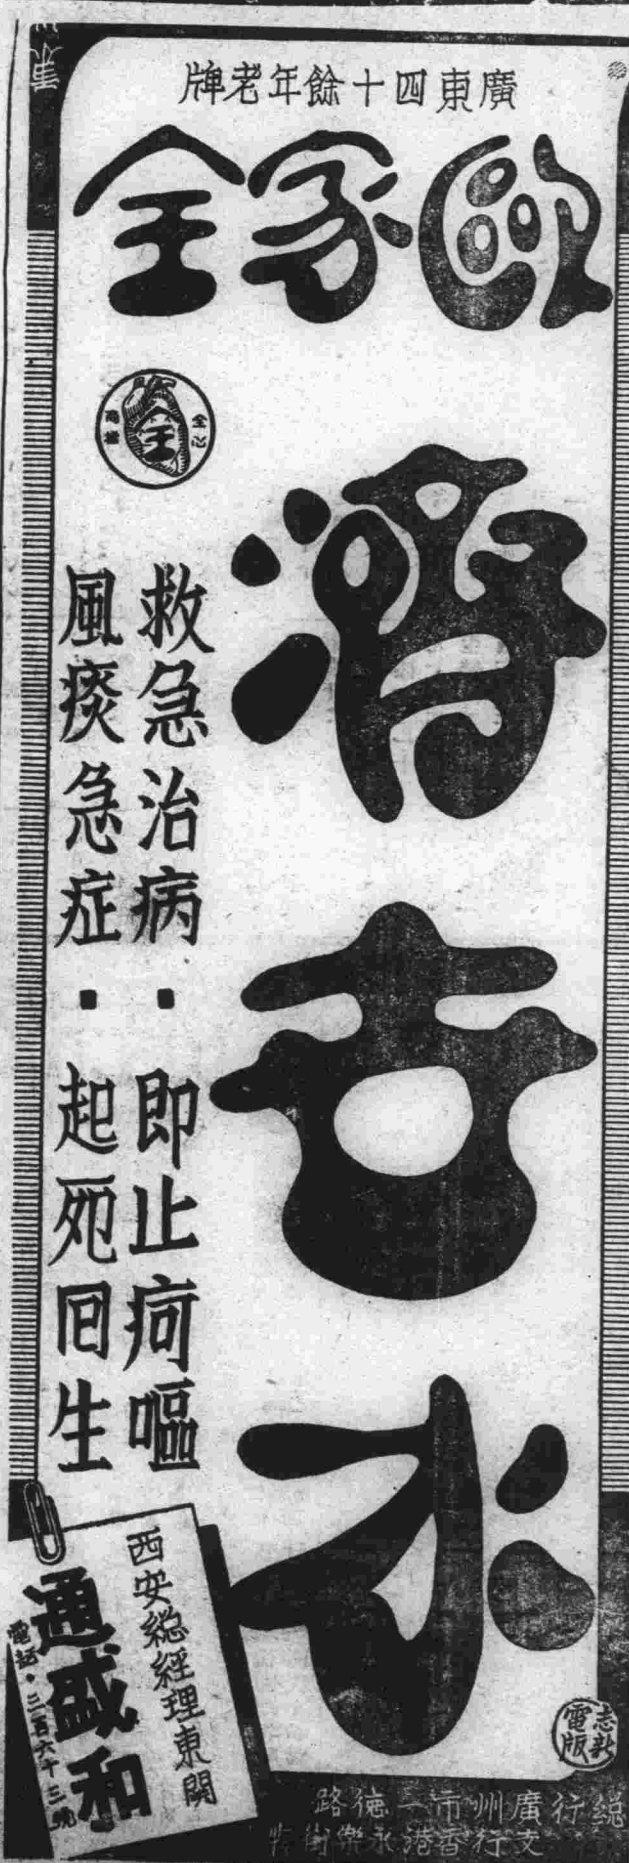 廣東四十餘年老牌
歐家全
濟衆水
全心
為記
救急治病．即止疴嘔
風痰急症．起死囘生
西安總經理東關
通盛和
電話．三百六十三號
志新電版
總行廣州市一德路
支行香港永樂街